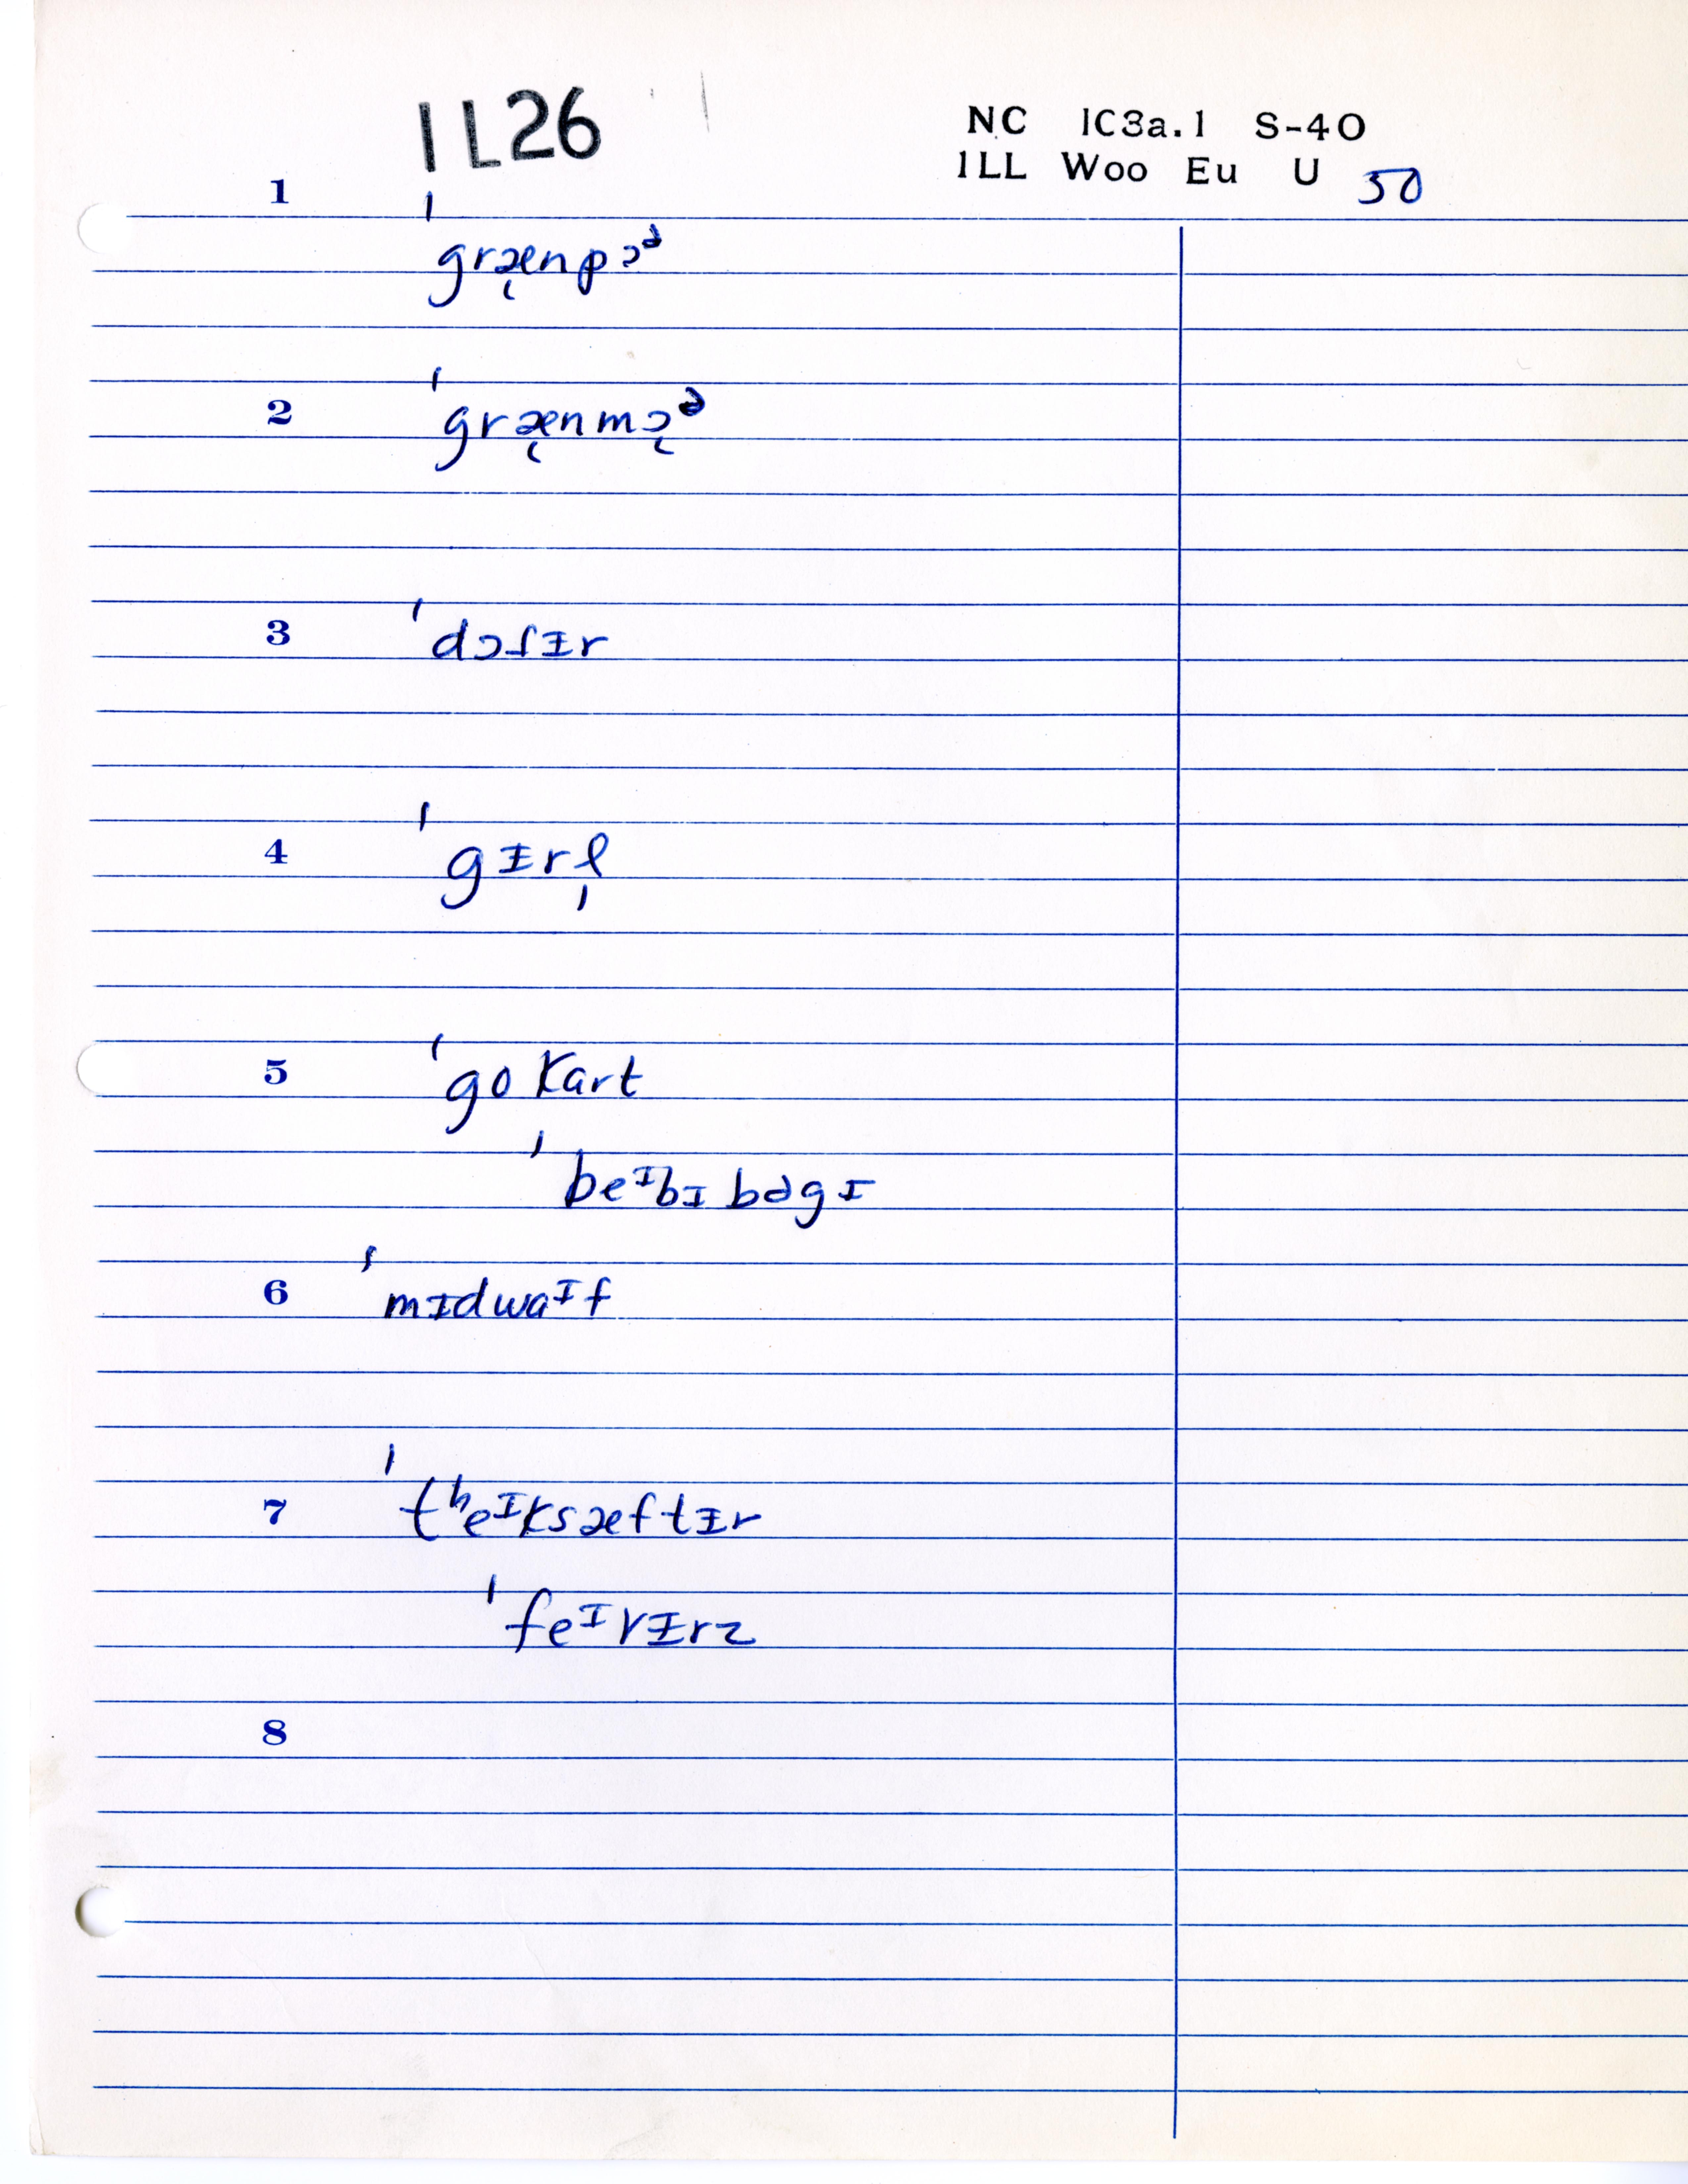 1L26
NC 1C3a.1 S-40
1LL Woo Eu U 50
1
ˈgræ̨npɔᵊ
2
ˈgræ̨nmɔ̨ᵊ
3
ˈdɔfɪ̵r
4
ˈgɪ̵rl̩
5
ˈgo kart
ˈbeᶦbɪ bəgɪ
6
ˈmɪ̵dwaᶦf
7
ˈtʰeᶦksæftɪ̵r
ˈfeᶦvɪ̵rz
8